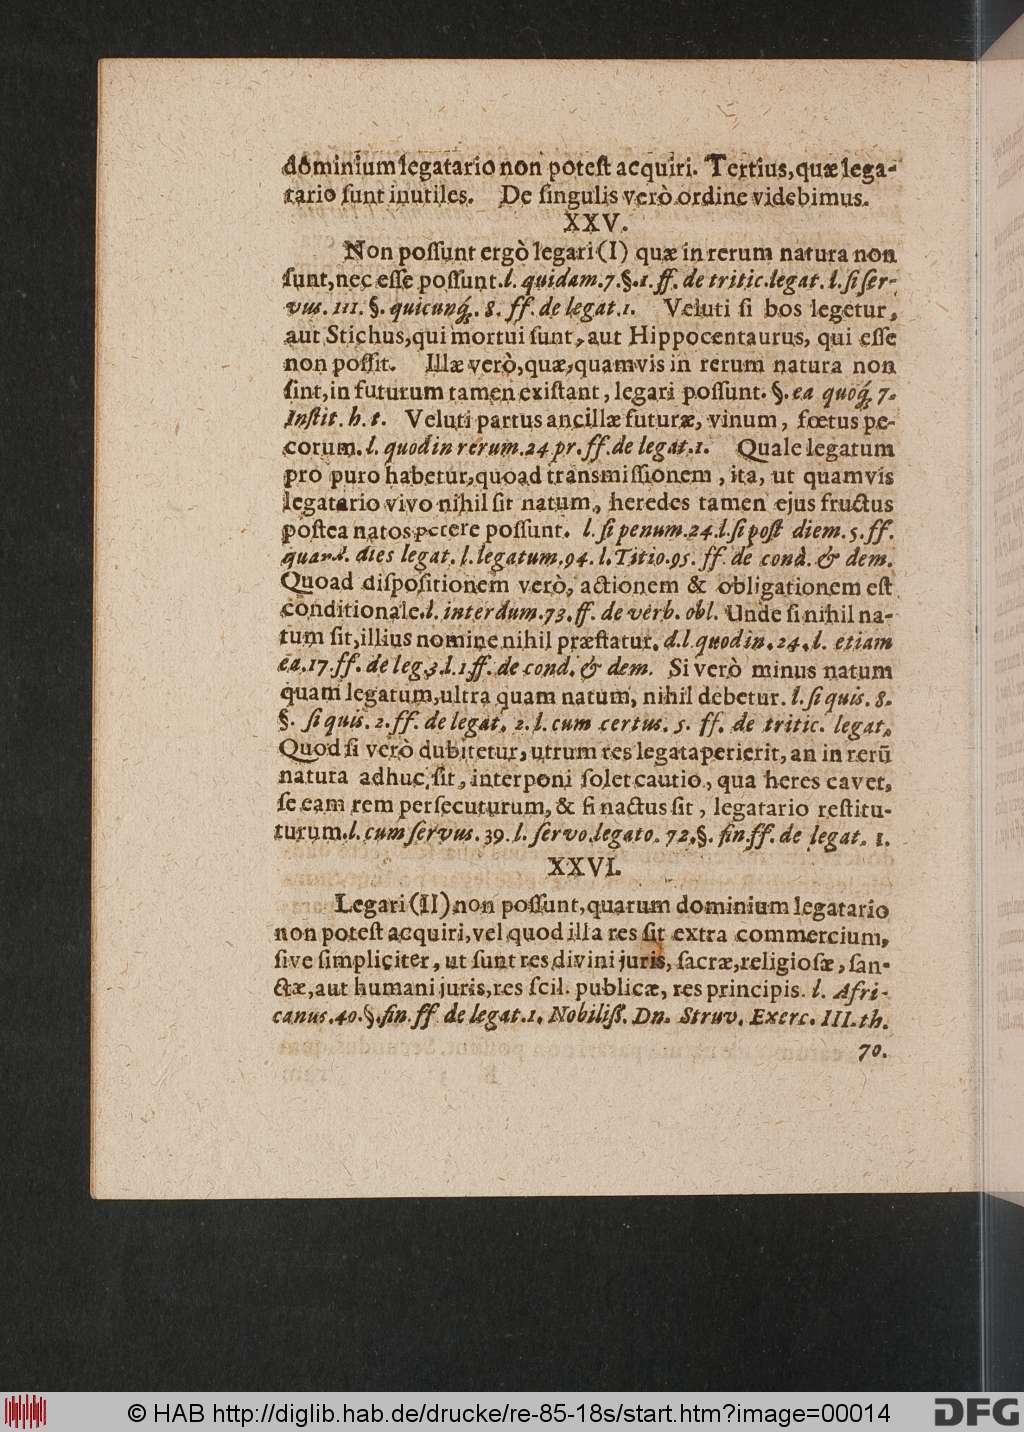 dominium legatario non poteſt acquiri. Tertius, quæ lega-
tario ſunt inutiles. De ſingulis verò ordine videbimus.
XXV.
Non poſſunt ergò legari (I) quæ in rerum natura non
ſunt, nec eſſe poſſunt. l. quidam. 7. §. 1. ff. de tritic. legat. l. ſi ſer-
vus. 111. §. quicunq́. 8. ff. de legat. 1. Veluti ſi bos legetur,
aut Stichus, qui mortui ſunt, aut Hippocentaurus, qui eſſe
non poſſit. Illæ verò, quæ, quamvis in rerum natura non
ſint, in futurum tamen exiſtant, legari poſſunt. §. ea quoq́ 7.
Inſtit. h. t. Veluti partus ancillæ futuræ, vinum, fœtus pe-
corum. l. quod in rerum. 24 pr. ff. de legat. 1. Quale legatum
pro puro habetur, quoad transmiſſionem, ita, ut quamvis
legatario vivo nihil ſit natum, heredes tamen ejus fructus
poſtea natos petere poſſunt. l. ſi penum. 24. l. ſi poſt diem. 5. ff.
quand. dies legat. l. legatum. 94. l. Titio. 95. ff. de cond. & dem.
Quoad diſpoſitionem verò, actionem & obligationem eſt
conditionale. l. interdum. 73. ff. de verb. obl. Unde ſi nihil na-
tum ſit, illius nomine nihil præſtatur. d. l. quod in. 24. l. etiam
ea. 17. ff. de leg. 3. l. 1 ff. de cond. & dem. Si verò minus natum
quam legatum, ultra quam natum, nihil debetur. l. ſi quis. 8.
§. ſi quis. 2. ff. de legat. 2. l. cum certus. 5. ff. de tritic. legat.
Quod ſi verò dubitetur, utrum res legata perierit, an in rerū
natura adhuc ſit, interponi ſolet cautio, qua heres cavet,
ſe eam rem perſecuturum, & ſi nactus ſit, legatario reſtitu-
turum. l. cum ſervus. 39. l. ſervo legato. 72. §. fin. ff. de legat. 1.
XXVI.
Legari (II) non poſſunt, quarum dominium legatario
non poteſt acquiri, vel quod illa res ſit extra commercium,
ſive ſimpliciter, ut ſunt res divini juris, ſacræ, religioſæ, ſan-
ctæ, aut humani juris, res ſcil. publicæ, res principis. l. Afri-
canus. 40. §. fin. ff de legat. 1. Nobiliſſ. Dn. Struv. Exerc. III. th.
70.
© HAB http://diglib.hab.de/drucke/re-85-18s/start.htm?image=00014
DFG